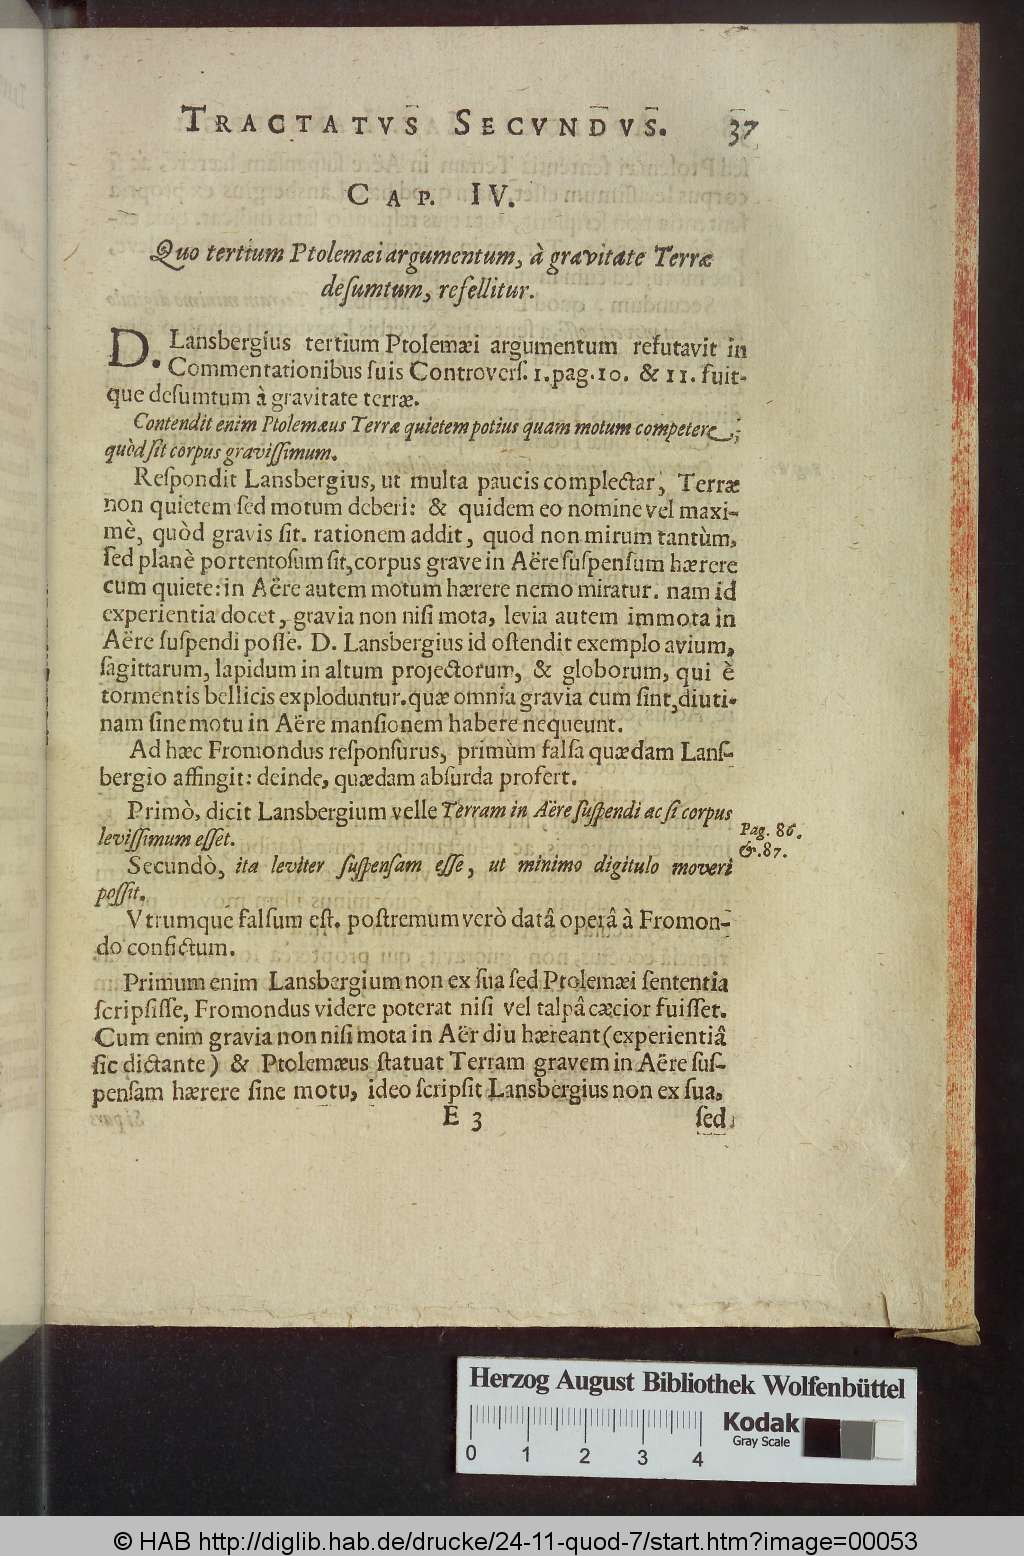 TRACTATVS SECVNDVS. 37
CAP. IV.
Quo tertium Ptolemæi argumentum, à gravitate Terræ
desumtum, refellitur.
D. Lansbergius tertium Ptolemæi argumentum refutavit in
Commentationibus suis Controvers. 1. pag. 10. & 11. fuit-
que desumtum à gravitate terræ.
Contendit enim Ptolemæus Terræ quietem potius quam motum competere,
quòd sit corpus gravissimum.
Respondit Lansbergius, ut multa paucis complectar, Terræ
non quietem sed motum deberi: & quidem eo nomine vel maxi-
mè, quòd gravis sit. rationem addit, quod non mirum tantùm,
sed planè portentosum sit, corpus grave in Aëre suspensum hærere
cum quiete: in Aëre autem motum hærere nemo miratur. nam id
experientia docet, gravia non nisi mota, levia autem immota in
Aëre suspendi posse. D. Lansbergius id ostendit exemplo avium,
sagittarum, lapidum in altum projectorum, & globorum, qui è
tormentis bellicis exploduntur. quæ omnia gravia cum sint, diuti-
nam sine motu in Aëre mansionem habere nequeunt.
Ad hæc Fromondus responsurus, primùm falsa quædam Lans-
bergio affingit: deinde, quædam absurda profert.
Primò, dicit Lansbergium velle Terram in Aëre suspendi ac si corpus
levissimum esset.
Pag. 86.
&. 87.
Secundò, ita leviter suspensam esse, ut minimo digitulo moveri
possit.
Vtrumque falsum est. postremum verò datâ operâ à Fromon-
do confictum.
Primum enim Lansbergium non ex sua sed Ptolemæi sententia
scripsisse, Fromondus videre poterat nisi vel talpâ cæcior fuisset.
Cum enim gravia non nisi mota in Aër diu hæreant (experientiâ
sic dictante) & Ptolemæus statuat Terram gravem in Aëre sus-
pensam hærere sine motu, ideo scripsit Lansbergius non ex sua,
E 3 sed
Herzog August Bibliothek Wolfenbüttel
Kodak
Gray Scale
0 1 2 3 4
© HAB http://diglib.hab.de/drucke/24-11-quod-7/start.htm?image=00053